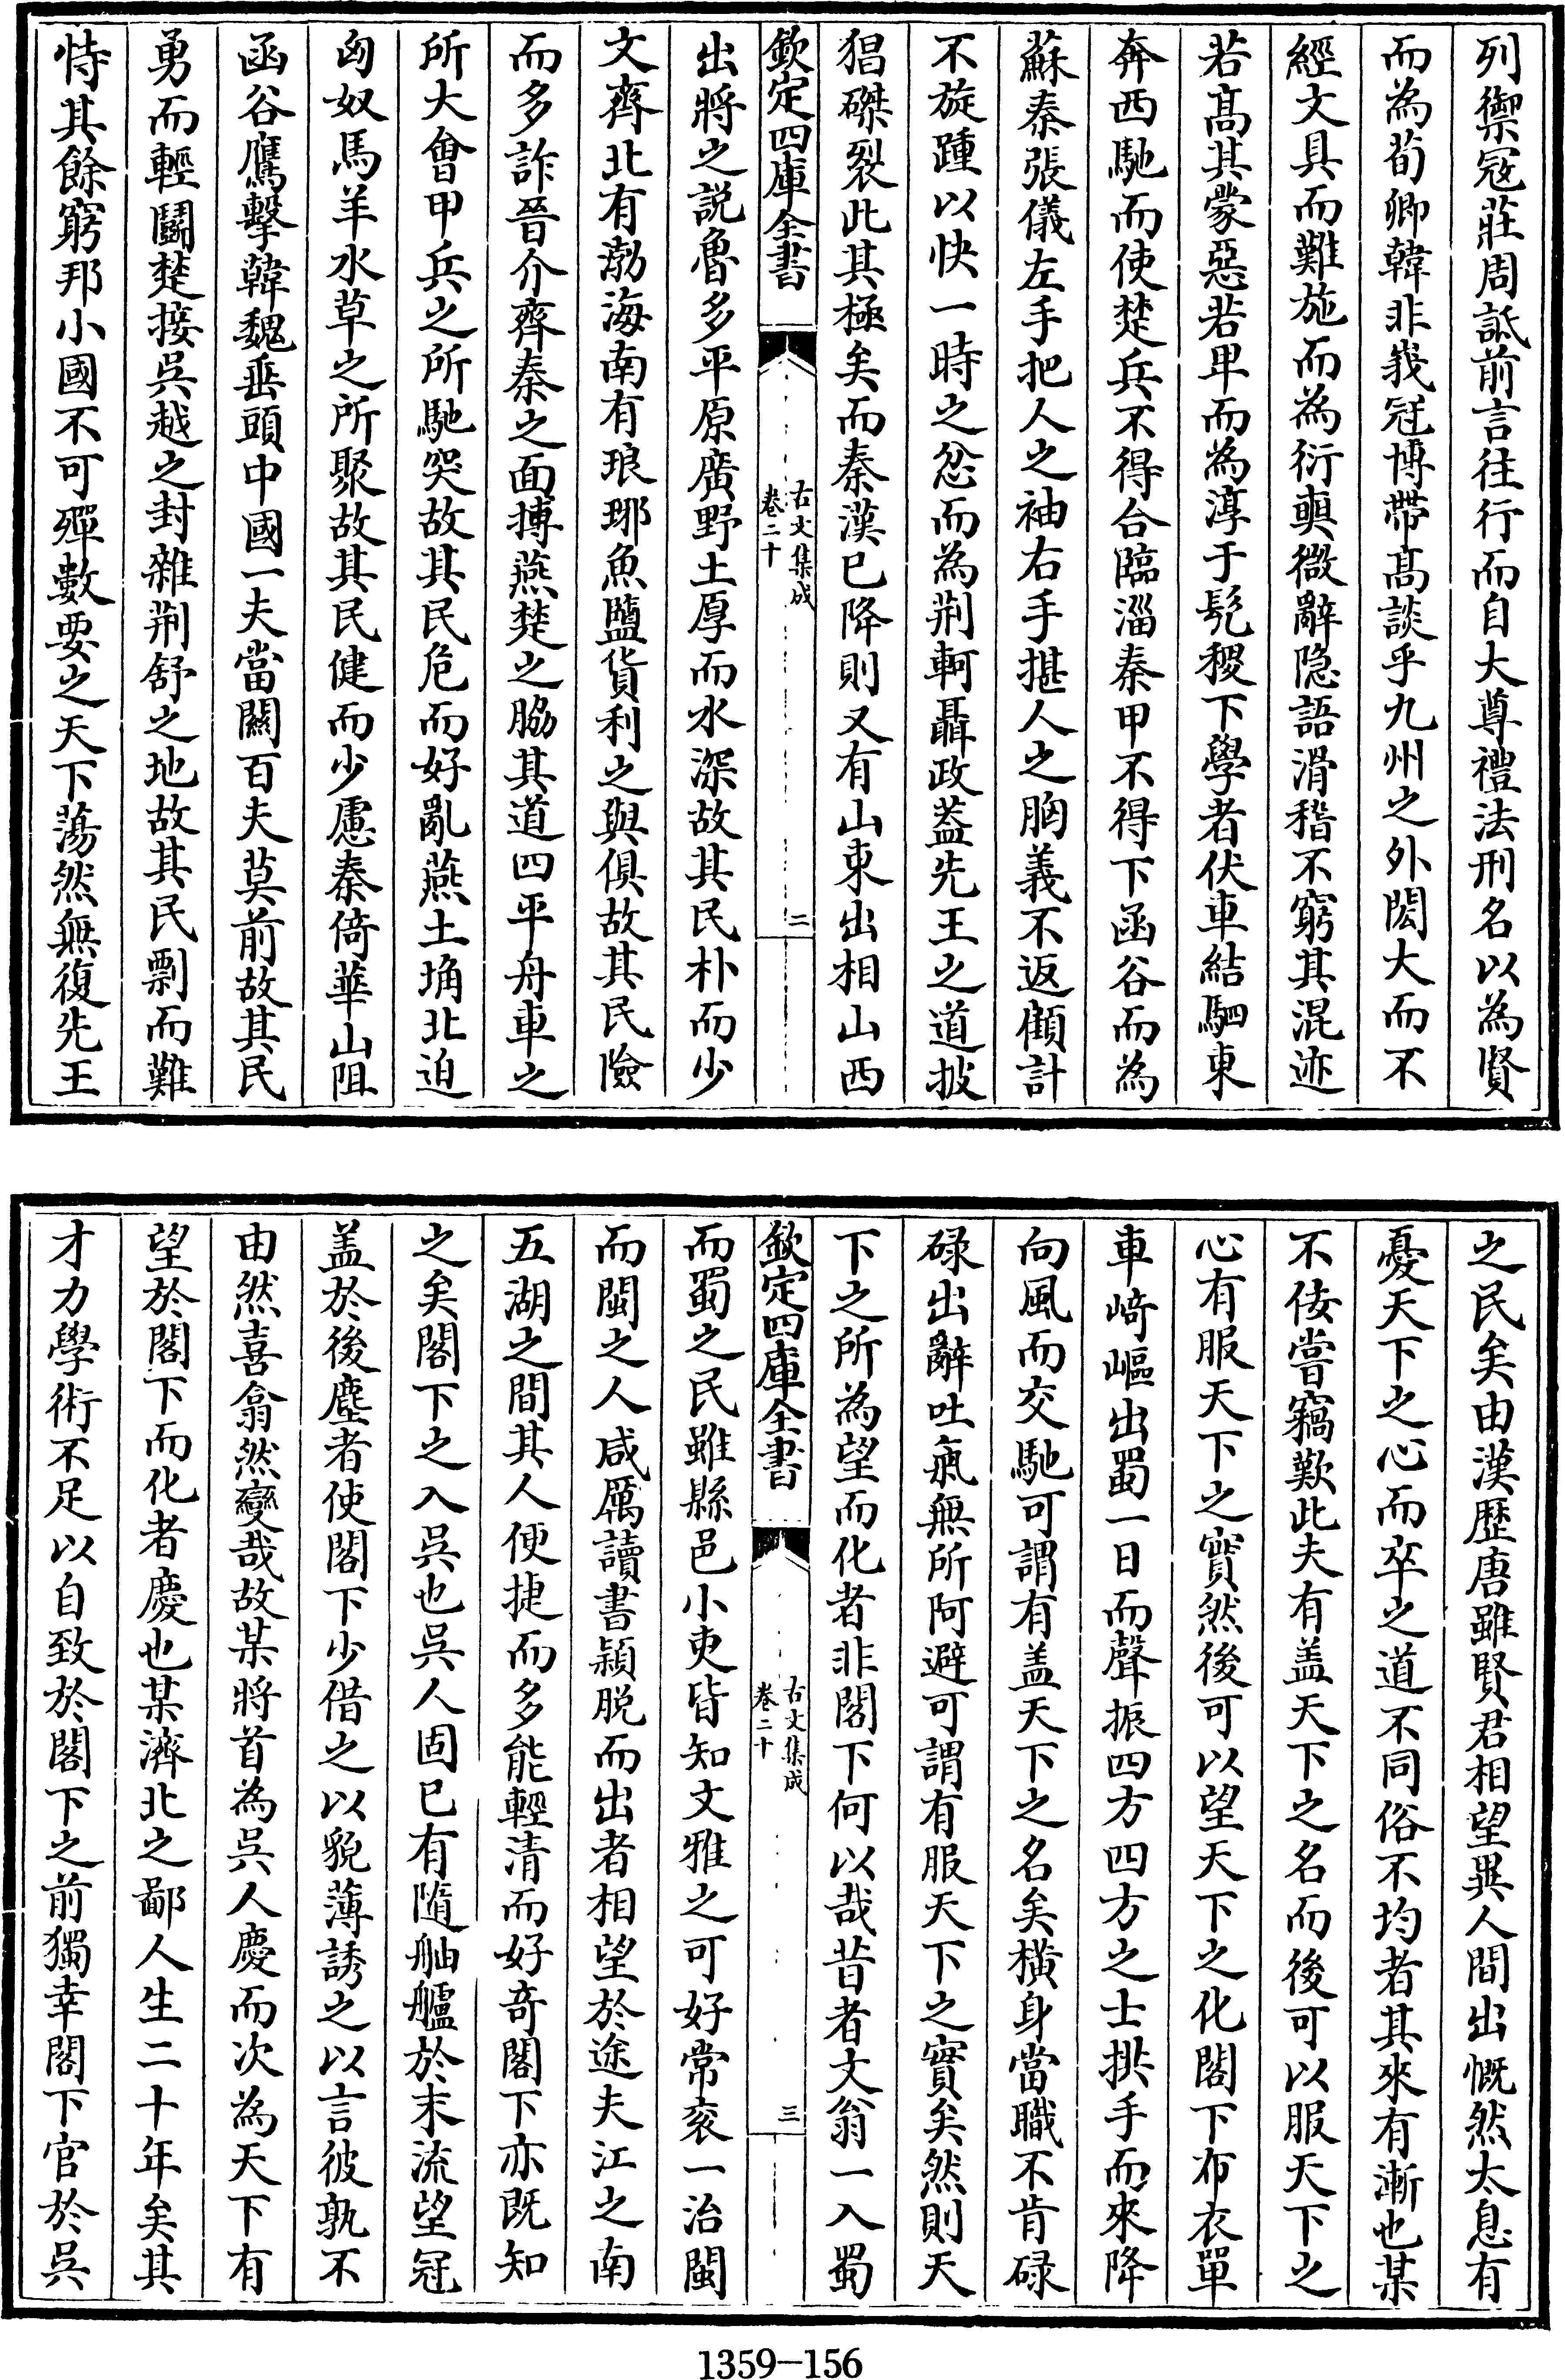 列禦冦莊周詆前言往行而自大尊禮法刑名以為賢
而為荀卿韓非峩冠博帶髙談乎九州之外閎大而不
經文具而難施而為衍奭微辭隐語滑稽不窮其混迹
若髙其蒙惡若卑而為淳于髠稷下學者伏車結駟東
奔西馳而使楚兵不得合臨淄秦甲不得下函谷而為
蘇秦張儀左手把人之袖右手揕人之胸義不返顧計
不旋踵以快一時之忿而為荆軻聶政葢先王之道披
猖磔裂此其極矣而秦漢已降則又有山東出相山西
欽定四庫全書
古文集成
卷二十
二
出將之説魯多平原廣野土厚而水深故其民朴而少
文齊北有渤海南有琅琊魚鹽貨利之與俱故其民險
而多詐晉介齊秦之面搏燕楚之脇其道四平舟車之
所大會甲兵之所馳突故其民危而好亂燕土埆北迫
匈奴馬羊水草之所聚故其民健而少慮秦倚華山阻
函谷鷹擊韓魏垂頭中國一夫當闗百夫莫前故其民
勇而輕鬬楚接吳越之封雜荆舒之地故其民剽而難
恃其餘窮邦小國不可殫數要之天下蕩然無復先王
之民矣由漢歴唐雖賢君相望異人間出慨然太息有
憂天下之心而卒之道不同俗不均者其來有漸也某
不佞嘗竊歎此夫有盖天下之名而後可以服天下之
心有服天下之實然後可以望天下之化閣下布衣單
車﨑嶇出蜀一日而聲振四方四方之士拱手而來降
向風而交馳可謂有盖天下之名矣橫身當職不肯碌
碌出辭吐氣無所阿避可謂有服天下之實矣然則天
下之所為望而化者非閣下何以哉昔者文翁一入蜀
欽定四庫全書
古文集成
卷二十
三
而蜀之民雖縣邑小吏皆知文雅之可好常衮一治閩
而閩之人咸厲讀書穎脱而出者相望於途夫江之南
五湖之間其人便捷而多能輕清而好奇閣下亦既知
之矣閣下之入吳也吳人固已有隨舳艫於末流望冠
盖於後塵者使閣下少借之以貌薄誘之以言彼孰不
由然喜翕然變哉故某將首為吳人慶而次為天下有
望於閣下而化者慶也某濟北之鄙人生二十年矣其
才力學術不足以自致於閣下之前獨幸閣下官於吳
1359—156